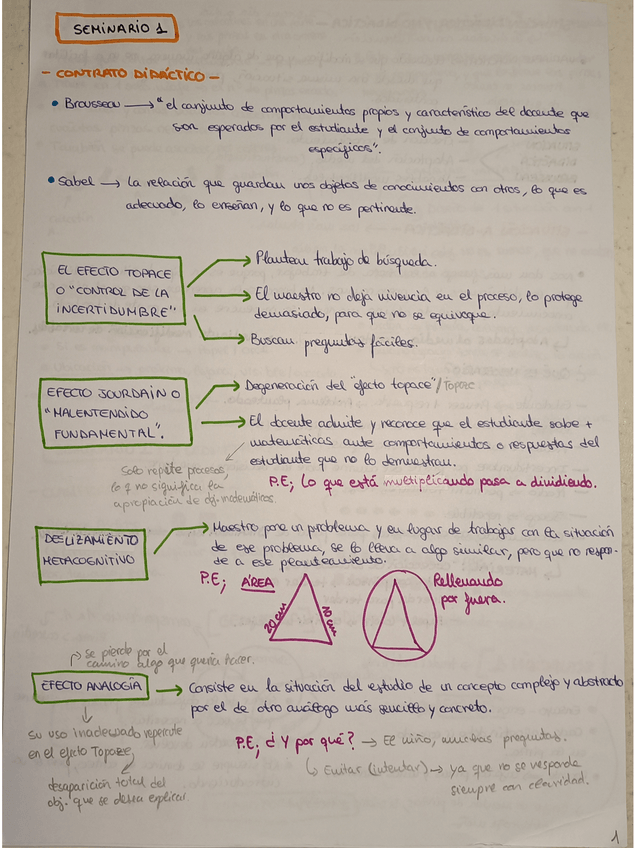 SEMINARIO 1
- CONTRATO DIDÁCTICO -
• Brousseau → "el conjunto de comportamientos propios y característico del docente que
son esperados por el estudiante y el conjunto de comportamientos
específicos".
• Sabel → La relación que guardan unos objetos de conocimientos con otros, lo que es
adecuado, lo enseñan, y lo que no es pertinente.
EL EFECTO TOPACE
O "CONTROL DE LA
INCERTIDUMBRE"
→ Plantean trabajo de búsqueda.
→ El maestro no deja vivencia en el proceso, lo protege
demasiado, para que no se equivoque.
→ Buscan preguntas fáciles.
EFECTO JOURDAIN O
"MALENTENDIDO
FUNDAMENTAL".
→ Degeneración del "efecto topace"/Topaze
→ El docente admite y reconoce que el estudiante sabe +
matemáticas ante comportamientos o respuestas del
estudiante que no lo demuestran.
Solo repite procesos,
lo q no significa la
apropiación de obj. matemáticos.
P.E; Lo que está multiplicando pasa a dividiendo.
DESLIZAMIENTO
METACOGNITIVO
→ Maestro pone un problema y en lugar de trabajar con la situación
de ese problema, se lo lleva a algo similar, pero que no respon-
de a ese planteamiento.
P.E; ÁREA
20 cm
10 cm
Rellenando
por fuera.
se pierde por el
camino algo que quería hacer.
EFECTO ANALOGÍA
→ Consiste en la situación del estudio de un concepto complejo y abstracto
por el de otro análogo más sencillo y concreto.
Su uso inadecuado repercute
en el efecto Topaze,
desaparición total del
obj. que se desea explicar
P.E; ¿Y por qué? → El niño, muchas preguntas.
↳ Evitar (intentar) → ya que no se responde
siempre con claridad.
1